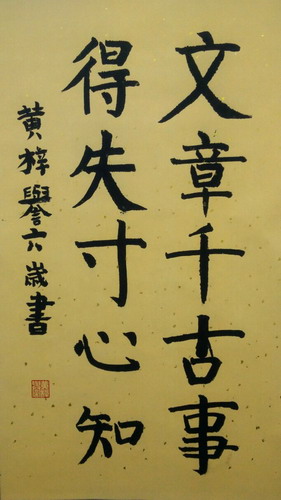 文章千古事
得失寸心知
黄梓譽六歲書